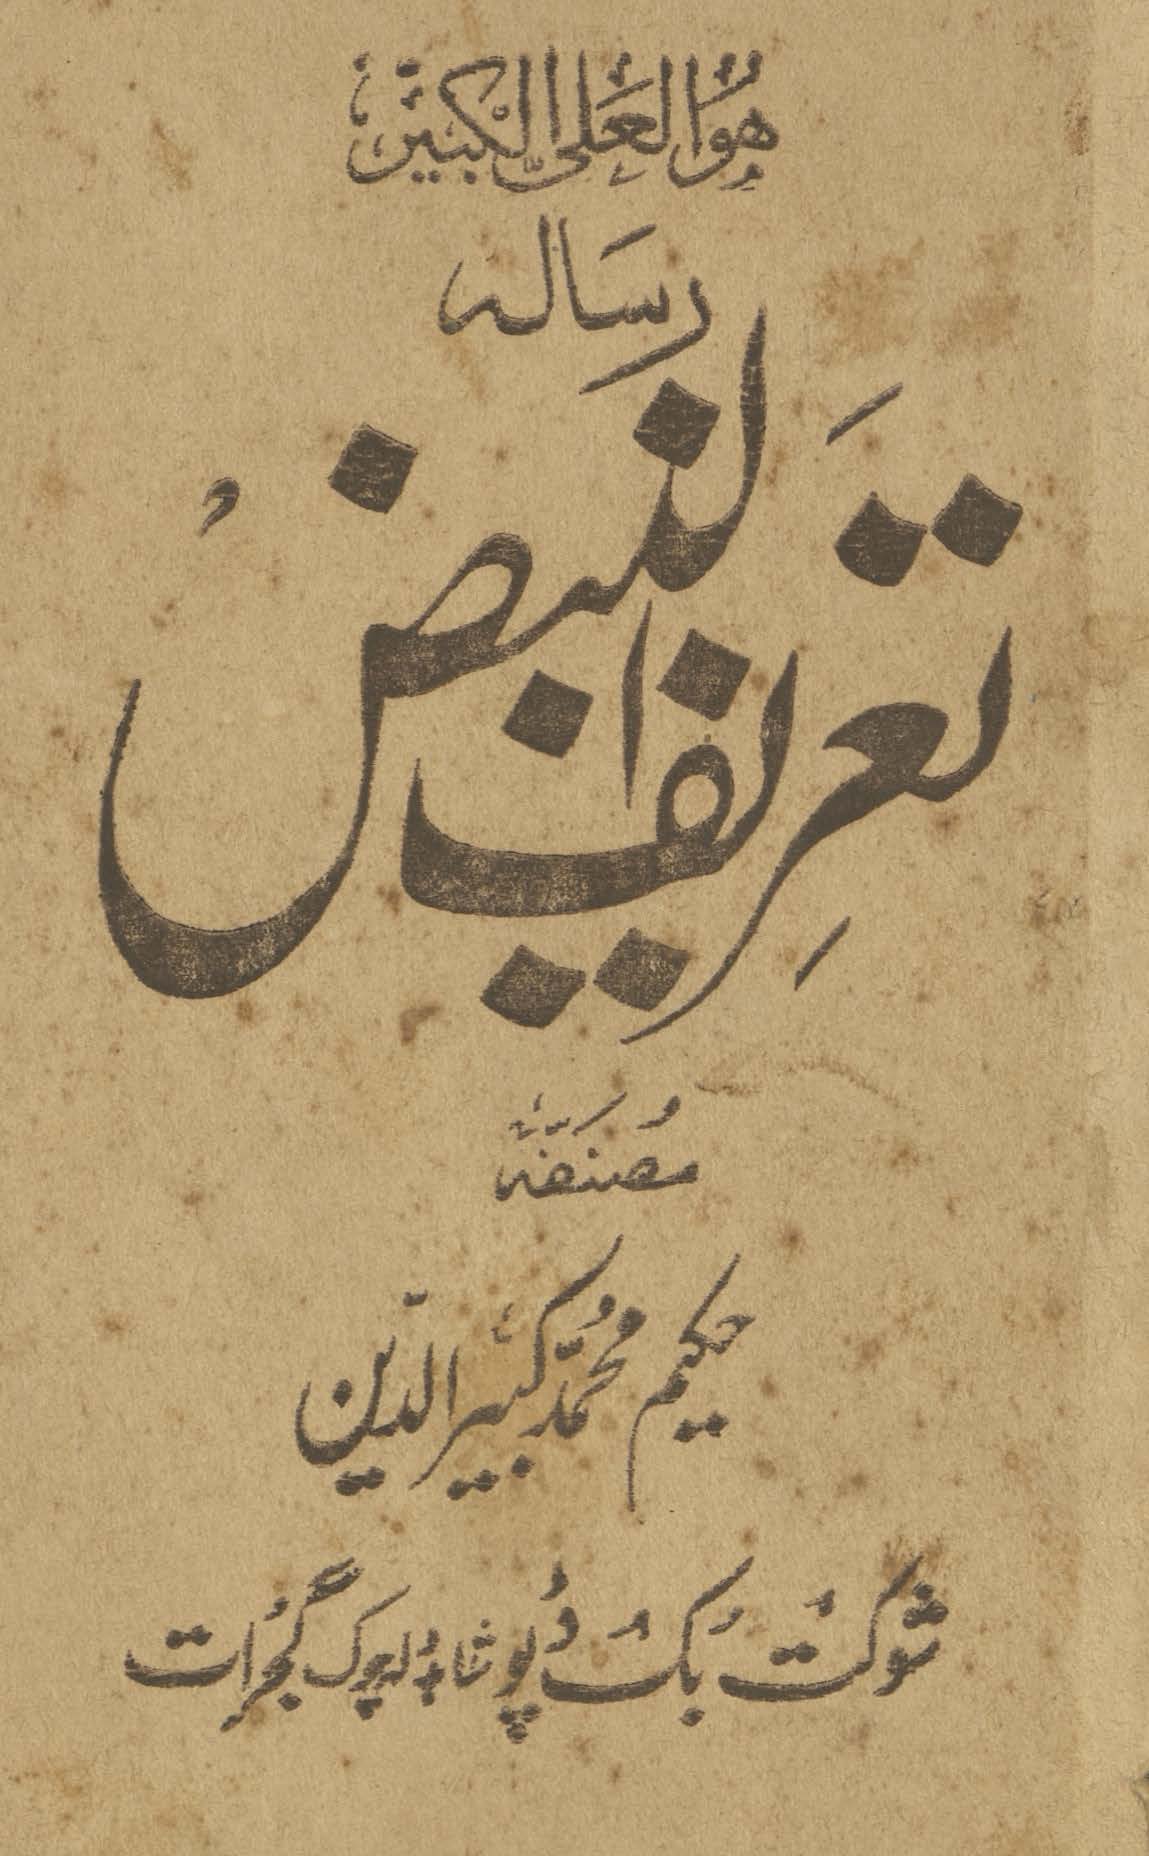 هُوَ العَلِیُّ الکَبِیرُ
رسَاله
تَعرِیفُ النَبض
مُصَنَّفَہٗ
حکیم محُمَّد کبیر الدّین
شوکت بُک ڈپو شاہدولہ چوک گجُرات